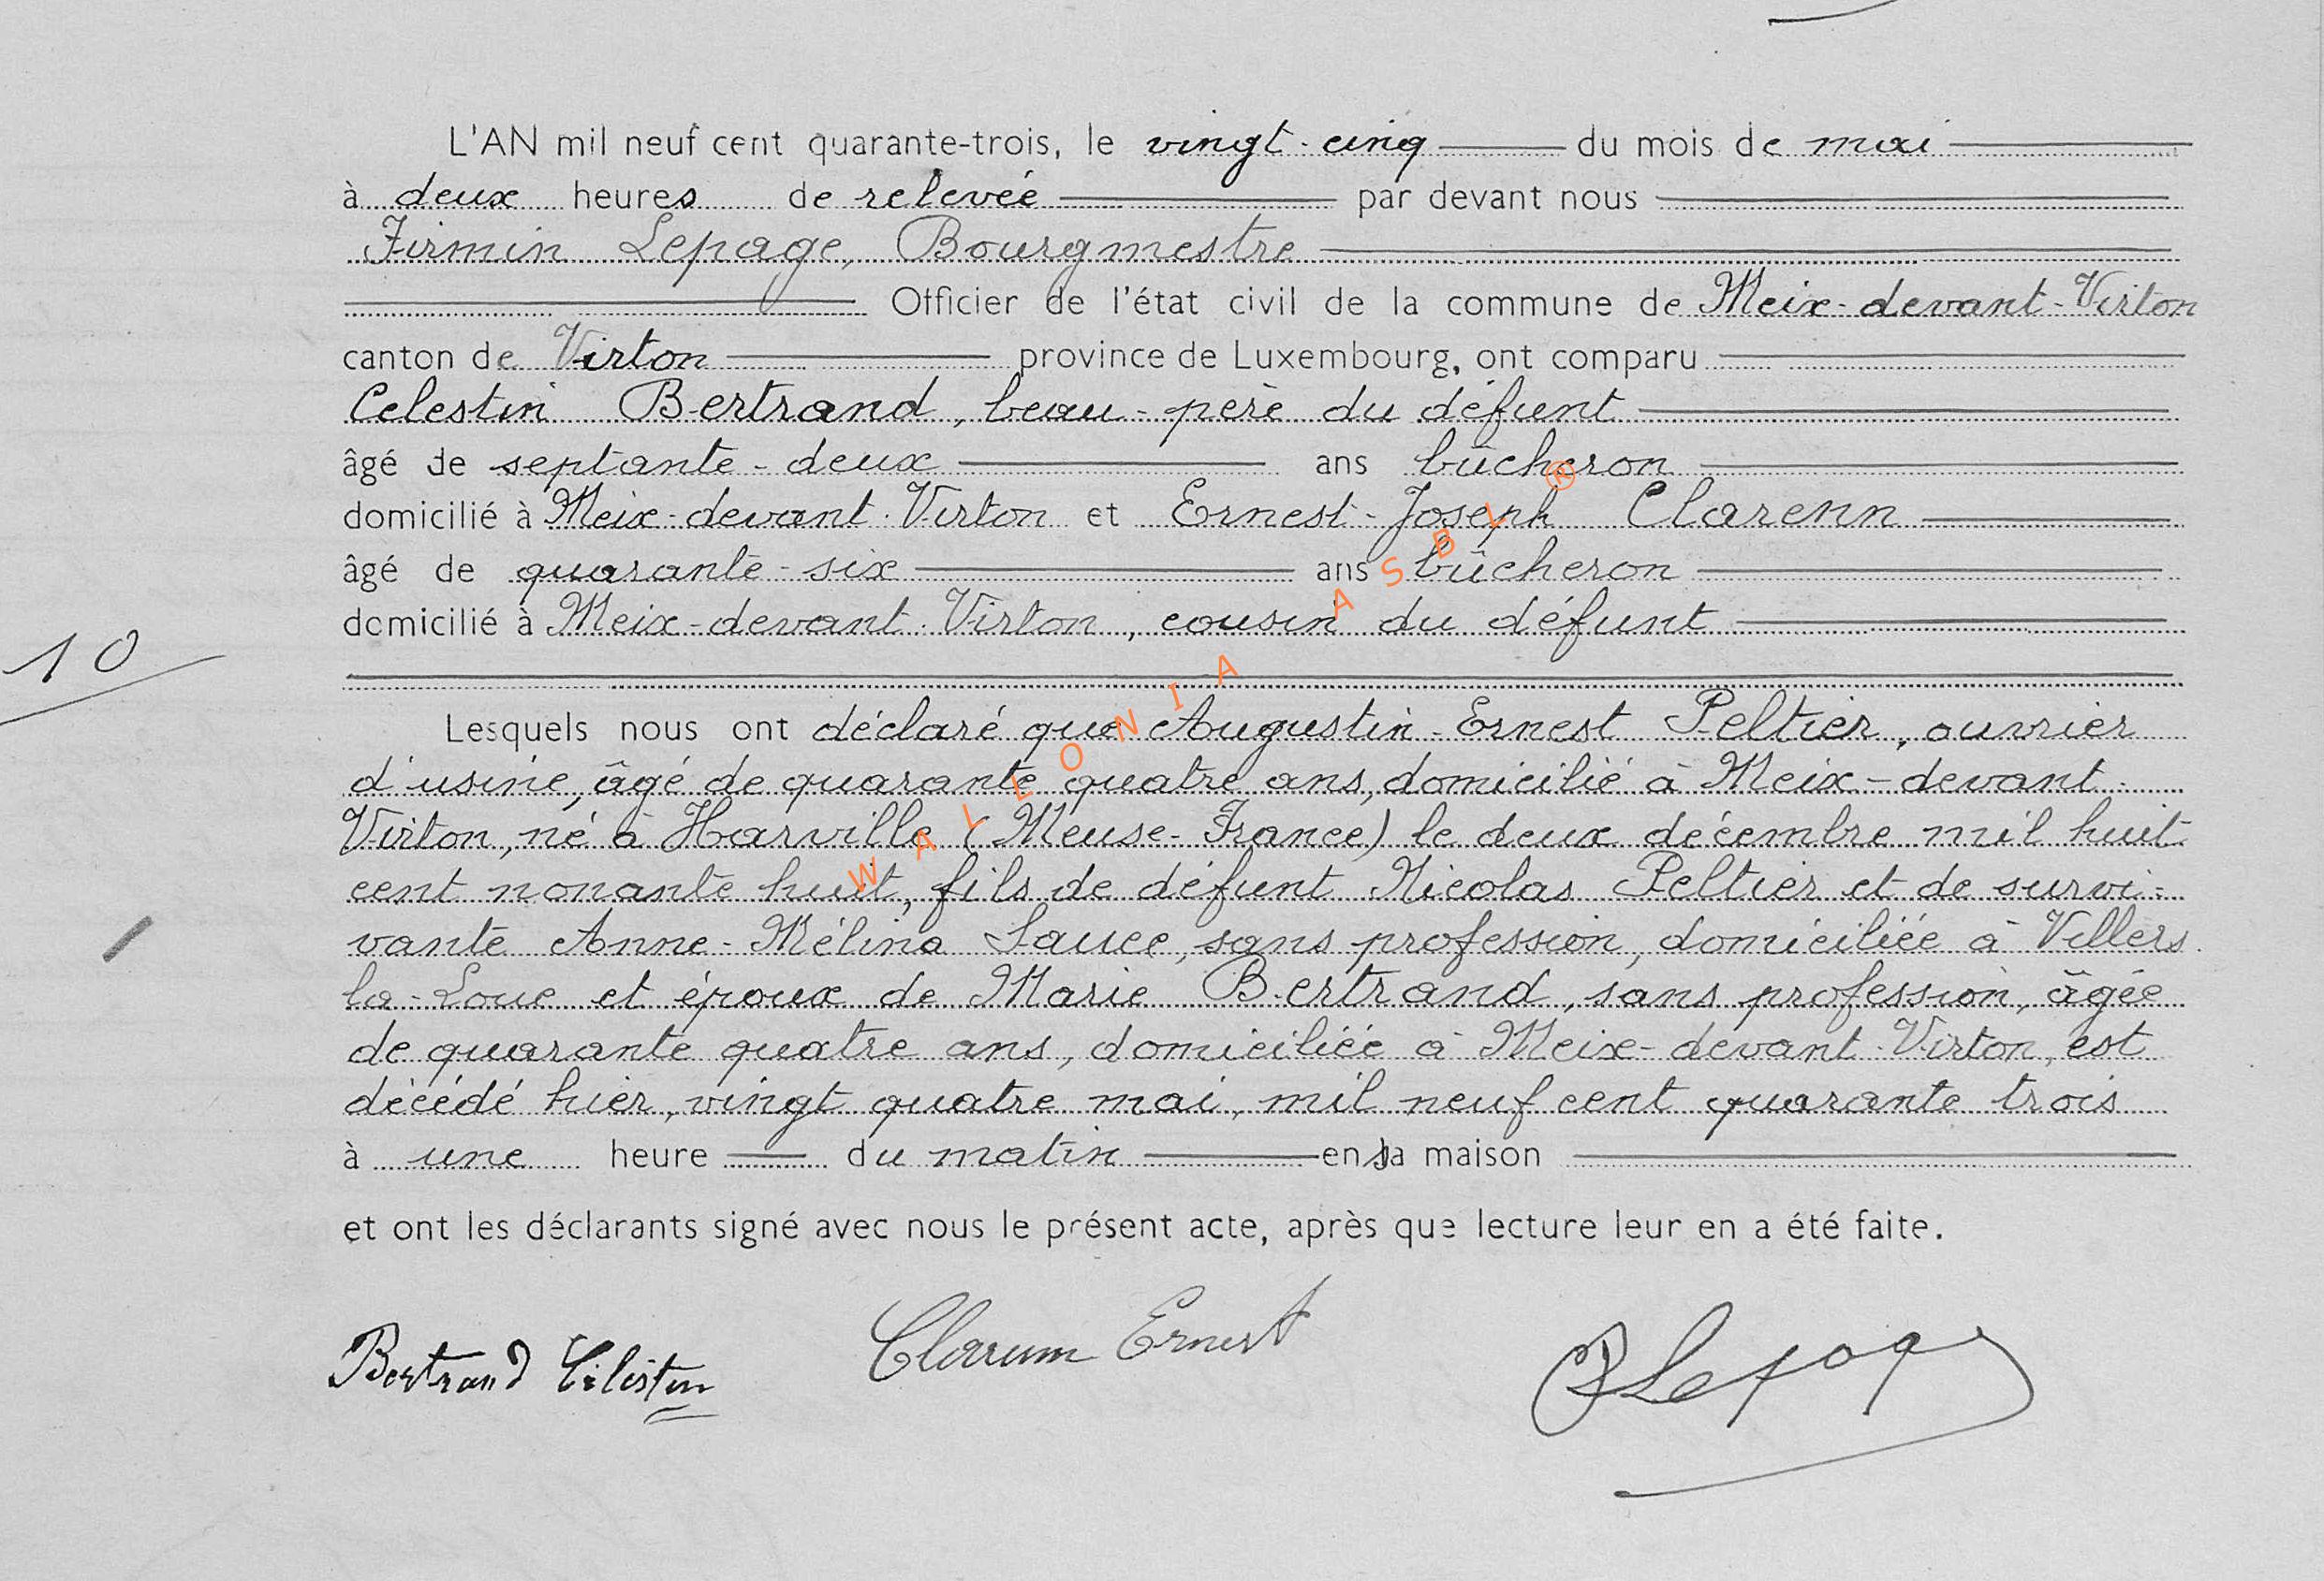 L'AN mil neuf cent quarante-trois, le vingt-cinq du mois de mai
à deux heures de relevée par devant nous
Firmin Lepage, Bourgmestre
Officier de l'état civil de la commune de Meix-devant-Virton
canton de Virton province de Luxembourg, ont comparu
Celestin Bertrand, beau-père du défunt
âgé de septante-deux ans bûcheron
domicilié à Meix-devant-Virton et Ernest-Joseph Clarenn
âgé de quarante-six ans bûcheron
domicilié à Meix-devant-Virton, cousin du défunt
10
Lesquels nous ont déclaré que Augustin-Ernest Peltier, ouvrier
d'usine, âgé de quarante quatre ans, domicilié à Meix-devant-
Virton, né à Harville (Meuse-France) le deux décembre mil huit
cent nonante huit, fils de défunt Nicolas Peltier et de survi-
vante Anne-Mélina Sauce, sans profession, domiciliée à Villers
la-Loue et époux de Marie Bertrand, sans profession, âgée
de quarante quatre ans, domiciliée à Meix-devant-Virton, est
décédé hier, vingt quatre mai, mil neuf cent quarante trois
à une heure du matin en sa maison
et ont les déclarants signé avec nous le présent acte, après que lecture leur en a été faite.
Bertrand Célestin Clarenn Ernest FLepage
WALLONIA ASBL ®